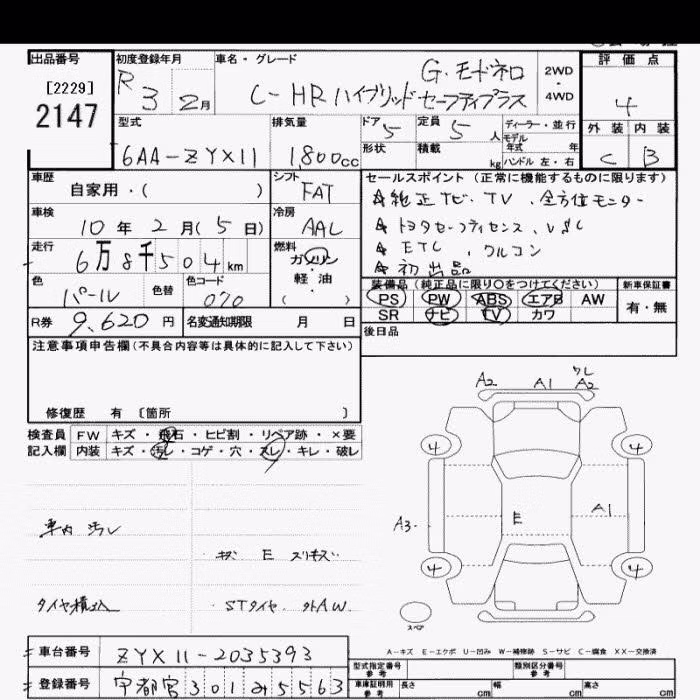 出品番号 初度登録年月 車名・グレード 評価点
[2229] R 3 2月 G.モードネロ 2WD
2147 C-HRハイブリッド セーフティプラス 4WD 4
型式 排気量 ドア 定員 ディーラー・並行 外装 内装
6AA-ZYX11 1,800cc 5 5 人 モデル年式 年 C B
形状 積載 kg ハンドル 左・右
車歴 シフト セールスポイント (正常に機能するものに限ります)
自家用・( ) FAT ☆純正ナビ、TV、全方位モニター
車検 冷房 ☆トヨタセーフティセンス、VSC
10年 2月( 5日) AAL ☆ETC、クルコン
走行 燃料 ☆初出品
6万8千504km ガソリン
軽油
( )
色 色替 色コード 装備品 (純正品に限り○をつけてください) 新車保証書
パール 070 PS PW ABS エアB AW 有・無
SR ナビ TV カワ
R券 9,620円 名変通知期限 月 日 後日品
注意事項申告欄(不具合内容等は具体的に記入して下さい)
修復歴 有 〔箇所 〕
検査員 FW キズ・飛石・ヒビ割・リペア跡・×要
記入欄 内装 キズ・汚レ・コゲ・穴・スレ・キレ・破レ
A2 A1 ワレ A2
4 4
A3. E A1
4 4
車内 汚レ
キズ E スリキズ
タイヤ積込 STタイヤ 外AW
スペア
A-キズ E-エクボ U-凹み W-補修跡 S-サビ C-腐食 XX-交換済
車台番号 ZYX11-2035393
登録番号 宇都宮 301 5563
型式指定番号 参考 類別区分番号 参考
車庫証明用 参考 長さ cm 幅 cm 高さ cm